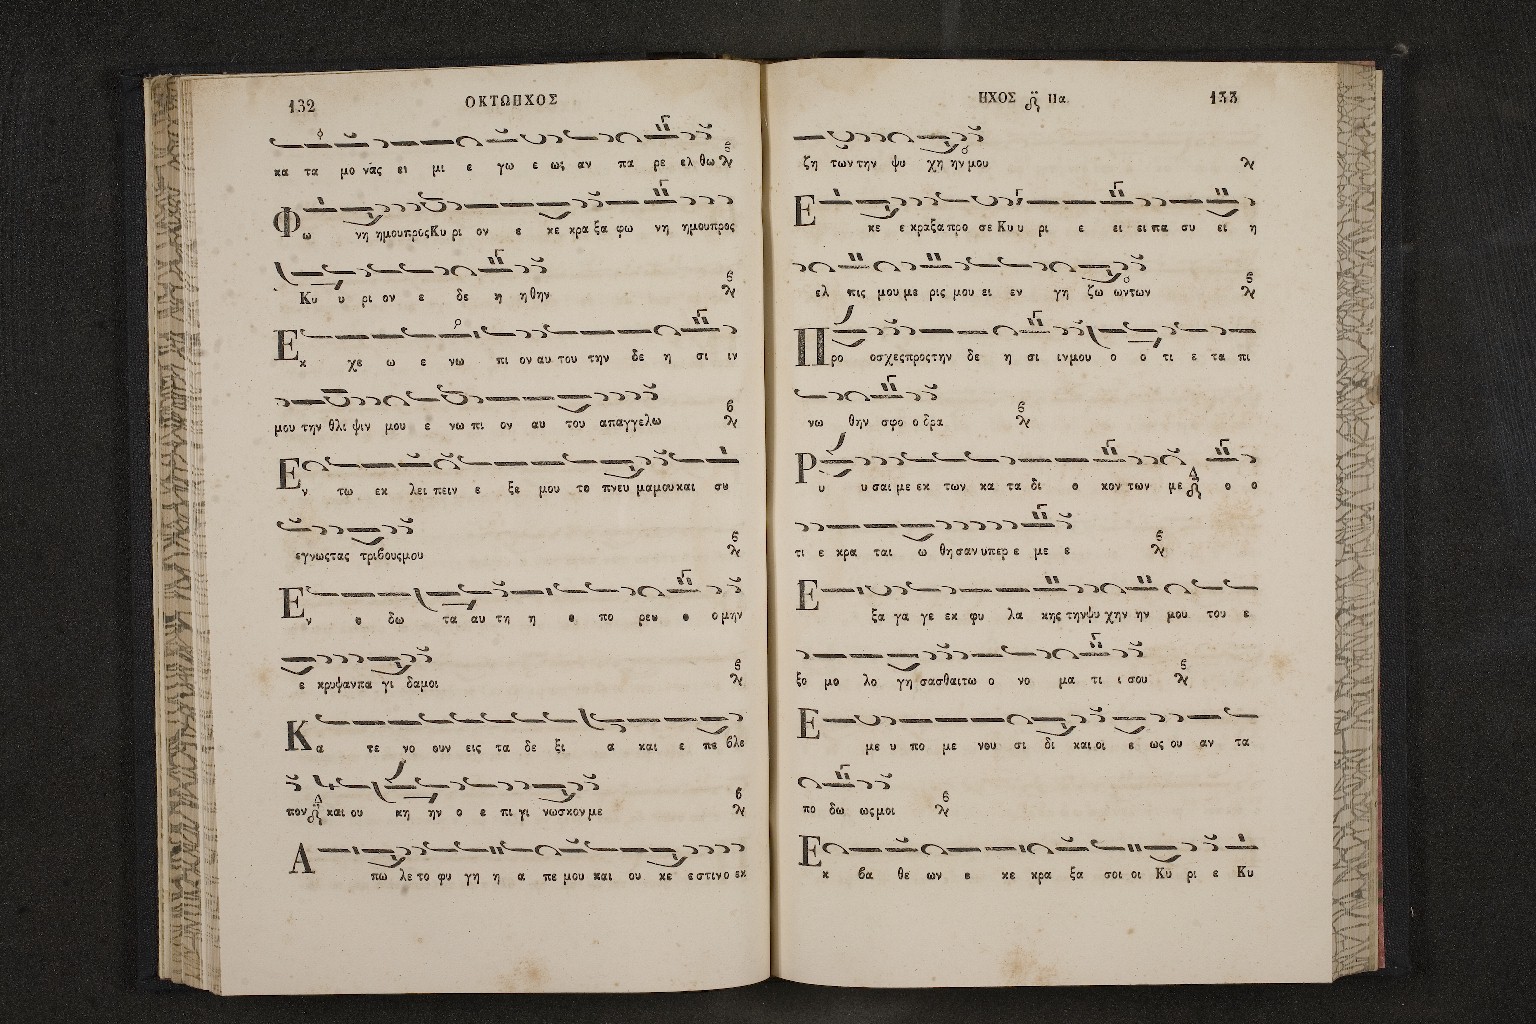 132
ΟΚΤΩΗΧΟΣ
κα τα μο νάς ει μι ε γω ε ως αν πα ρε ελ θω
Φω νη ημουπροςΚυ ρι ον ε κε κρα ξα φω νη ημουπρος
Κυ υ ρι ον ε δε η ηθην
Εκ χε ω ε νω πι ον αυ του την δε η σι ιν
μου την θλι ψιν μου ε νω πι ον αυ του απαγγελω
Εν τω εκ λει πειν ε ξε μου το πνευ μαμουκαι συ
εγνωςτας τριβουςμου
Εν ο δω τα αυ τη η ο πο ρευ ο ομην
ε κρυψανπα γι δαμοι
Κα τε νο ουν εις τα δε ξι α και ε πε βλε
πον και ου κη ην ο ε πι γι νωσκον με
Α πω λε το φυ γη η α πε μου και ου κε εστινο εκ
ΗΧΟΣ Πα.
133
ζη τωντην ψυ χη ηνμου
Ε κε ε κραξαπρο σε Κυ υ ρι ε ει ει πα συ ει η
ελ πις μου με ρις μου ει εν γη ζω ωντων
Προ οσχεςπροςτην δε η σι ινμου ο ο τι ε τα πι
νω θην σφο οδρα
Ρυ υσαι με εκ των κα τα δι ο κον των με ο ο
τι ε κρα ται ω θησανυπερε με ε
Ε ξα γα γε εκ φυ λα κης τηνψυ χην ην μου του ε
ξο μο λο γη σασθαιτω ο νο μα τι ι σου
Ε με υ πο με νου σι δι και οι ε ως ου αν τα
πο δω ωςμοι
Εκ βα θε ων ε κε κρα ξα σοι οι Κυ ρι ε Κυ